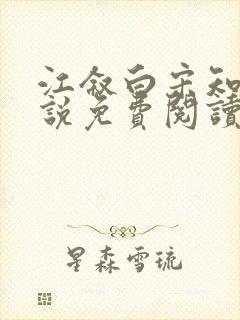 江敘白宋知
說免費閱讀
星森雪琉